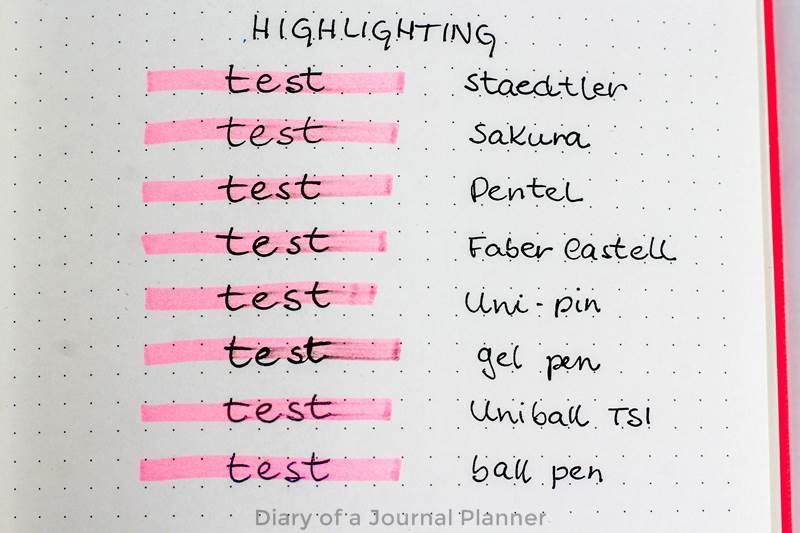 HIGHLIGHTING
test staedtler
test Sakura
test Pentel
test Faber Castell
test Uni-pin
test gel pen
test Uniball TSI
test ball pen
Diary of a Journal Planner